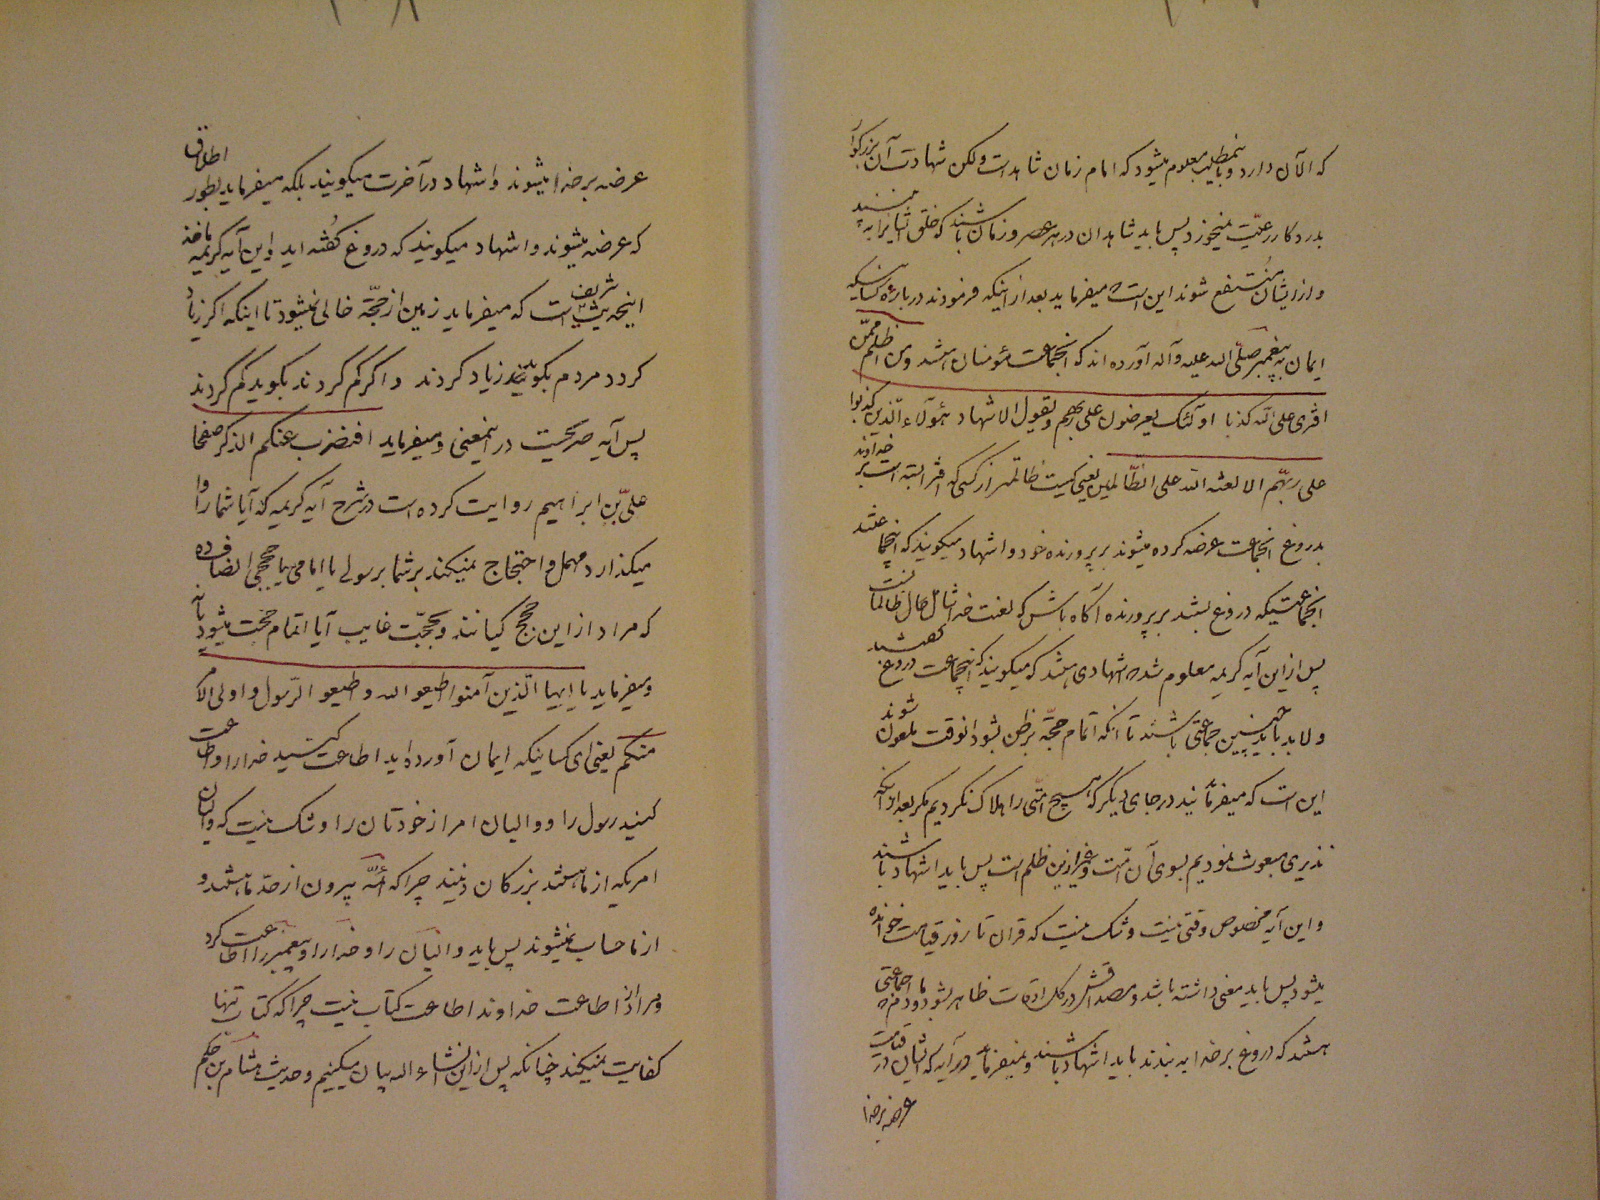 که الآن دارد و باینمطلب معلوم میشود که امام زمان شاهد است ولکن شهادت آن بزرگوار
بدرد کار رعیت نمیخورد پس باید شاهدان در هر عصر و زمان باشند که خلق ایشانرا به بینند
و از ایشان منتفع شوند این است میفرماید بعد از اینکه فرمودند درباره کسانیکه
ایمان به پیغمبر صلّی الله علیه و آله آورده اند که اینجماعت مؤمنان هستند و من اظلم ممّن
افتری علی الله کذبا اولئک یعرضون علی ربهم و یقول الاشهاد هؤلاء الّذین کذبوا
علی ربّهم الا لعنة الله علی الظّالمین یعنی کیست ظالمتر از کسی که افترا بسته است بر خداوند
بدروغ اینجماعت عرضه کرده میشوند بر پرورنده خود و اشهاد میگویند که اینجماعتند
آنجماعتیکه دروغ بستند بر پرورنده آگاه باش که لعنت خدا شامل حال ظالمانست
پس از این آیه کریمه معلوم شد اشهادی هستند که میگویند که اینجماعت دروغ گفتند
و لابد باید چنین جماعتی باشند تا آنکه اتمام حجّة بر خلق بشود آنوقت ملعون شوند
این است که میفرمایند در جای دیگر که هیچ امّتی را هلاک نکردیم مگر بعد از آنکه
نذیری مبعوث نمودیم بسوی آن امّت و غیر از این ظلم است پس باید اشهاد باشند
و این آیه مخصوص وقتی نیست و شک نیست که قران تا روز قیامت خوانده
میشود پس باید معنی داشته باشد و مصداقش در کل اوقات ظاهر بشود مادام جماعتی
هستند که دروغ بر خدا به بندند باید اشهاد باشند و نمیفرماید در آیه که ایشان در قیامت
عرضه بر خدا
عرضه بر خدا میشوند و اشهاد در آخرت میگویند بلکه میفرماید بطور اطلاق
که عرضه میشوند و اشهاد میگویند که دروغ گفته اید و این آیه کریمه ماخذ
اینحدیث شریف است که میفرماید زمین از حجّة خالی نمیشود تا اینکه اگر زیاد
کردند مردم بگویند زیاد کردند و اگر کم کردند بگوید کم کردند
پس آیه صریحست در اینمعنی و میفرماید افنضرب عنکم الذکر صفحا
علیّ بن ابراهیم روایت کرده است در شرح آیه کریمه که آیا شما را وا
میگذارد مهمل و احتجاج نمیکند بر شما برسولی یا امامی یا حججی انصاف ده
که مراد از این حجج کیانند و بحجّت غایب آیا اتمام حجت میشود یا نه
و میفرماید یا ایها الّذین آمنوا اطیعو الله و اطیعو الرّسول و اولی الامر
منکم یعنی ای کسانیکه ایمان آورده اید اطاعت کنید خدا را و اطاعت
کنید رسول را و والیان امر از خودتان را و شک نیست که والیان
امریکه از ما هستند بزرگان دینند چرا که ائمّه بیرون از حدّ ما هستند و
از ما حساب نمیشوند پس باید والیان را و خدا را و پیغمبر را اطاعت کرد
و مراد از اطاعت خداوند اطاعت کتاب نیست چرا که کتاب تنها
کفایت نمیکند چنانکه پس از این انشاء الله بیان میکنیم و حدیث هشام بن حکم